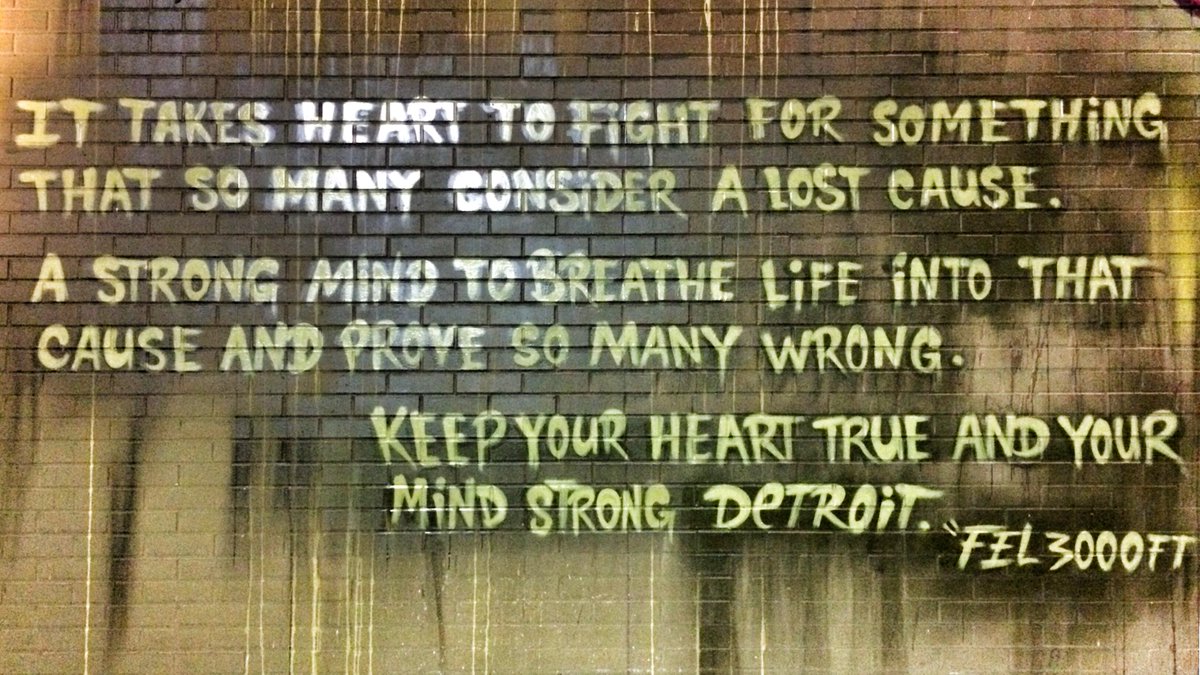 IT TAKES HEART TO FiGHT FOR SOMETHiNG
THAT SO MANY CONSiDER A LOST CAUSE.
A STRONG MiND TO BREATHE LiFE iNTO THAT
CAUSE AND PROVE SO MANY WRONG.
KEEP YOUR HEART TRUE AND YOUR
MiND STRONG DeTROiT.
"FEL3000FT